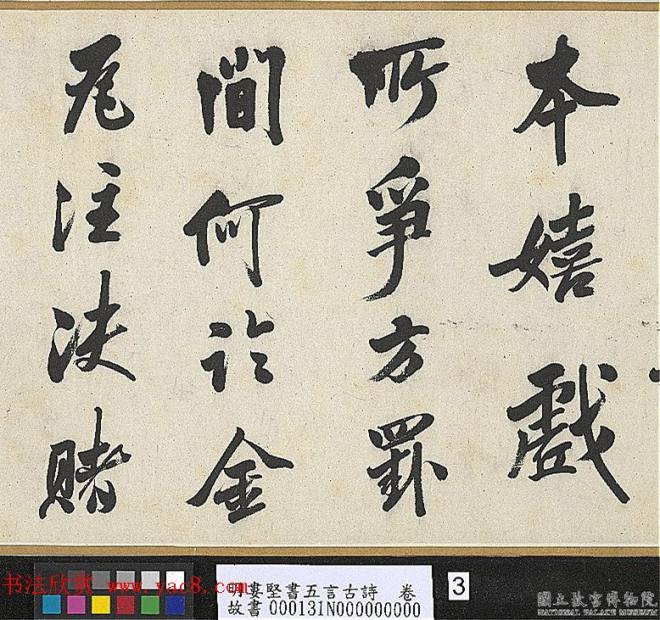 本嬉戲
所爭方罫
間何論金
瓦注決賭
书法欣赏 www.yac8.com
明婁堅書五言古詩 卷
故書 000131N000000000
3
國立故宮博物院
NATIONAL PALACE MUSEUM